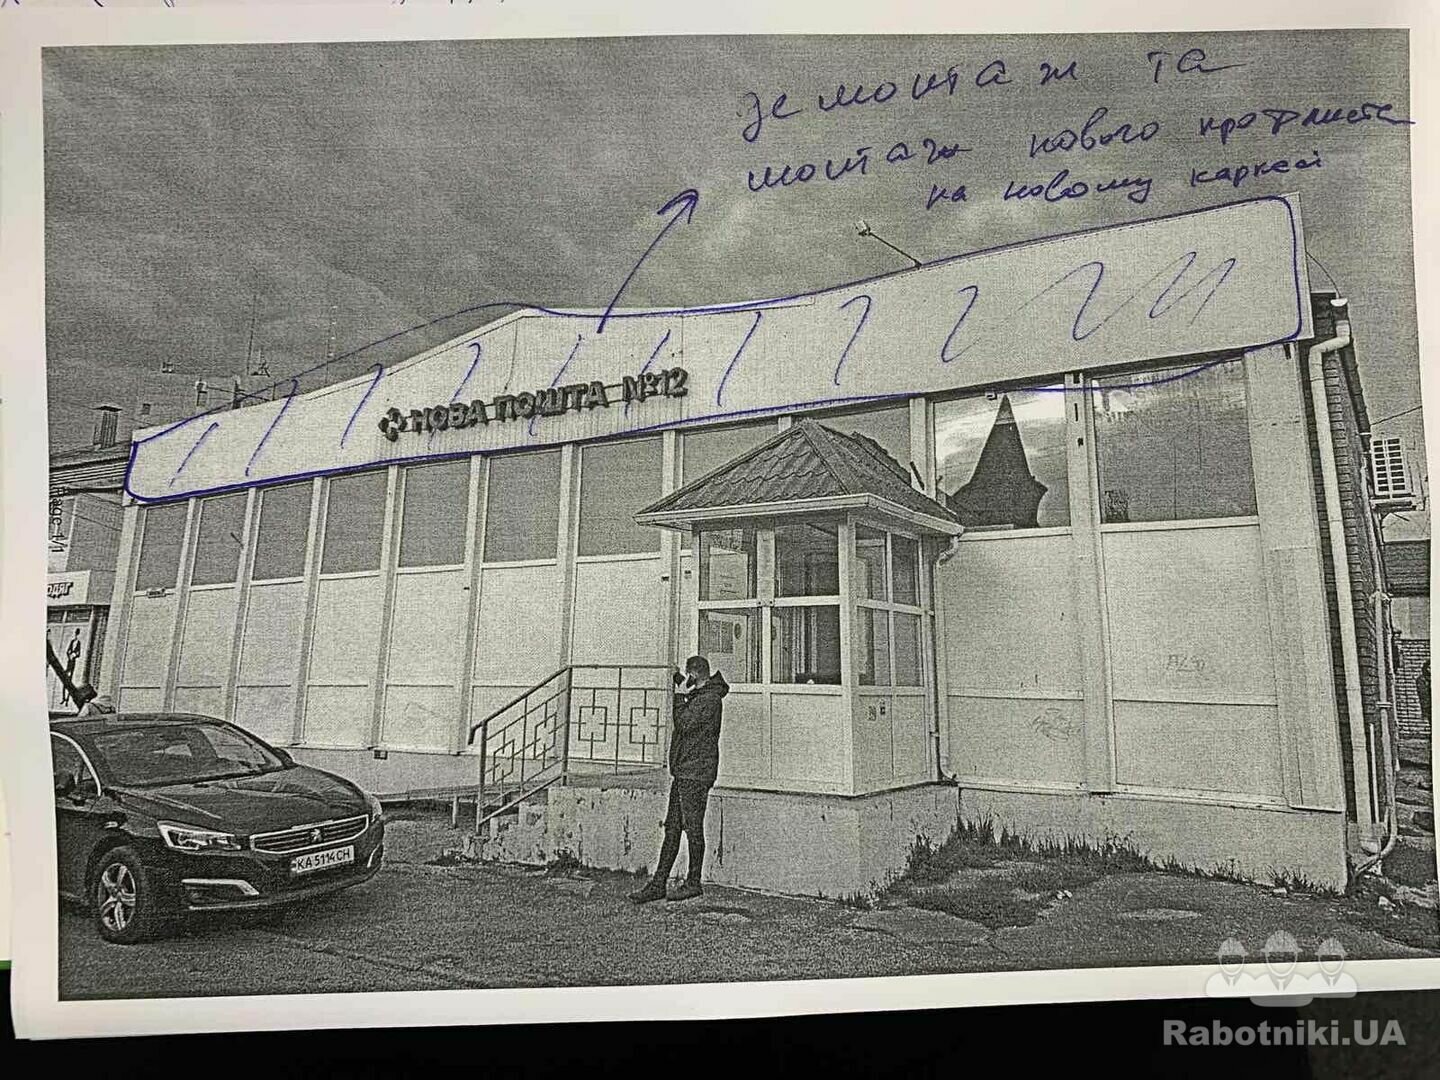 демонтаж та
монтаж нового профлиста
на новому каркасі
НОВА ПОШТА №12
ОДЯГ
КА 5114 СН
Rabotniki.UA